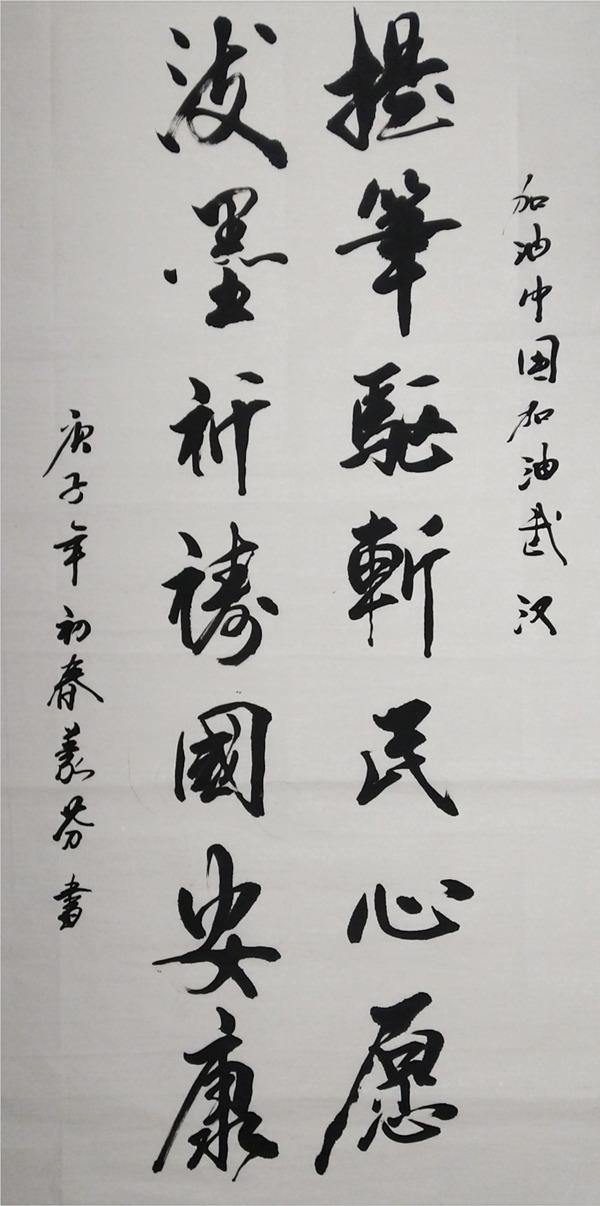 加油中国加油武汉
提筆斬民心愿
泼墨祈祷國安康
庚子年初春芬書